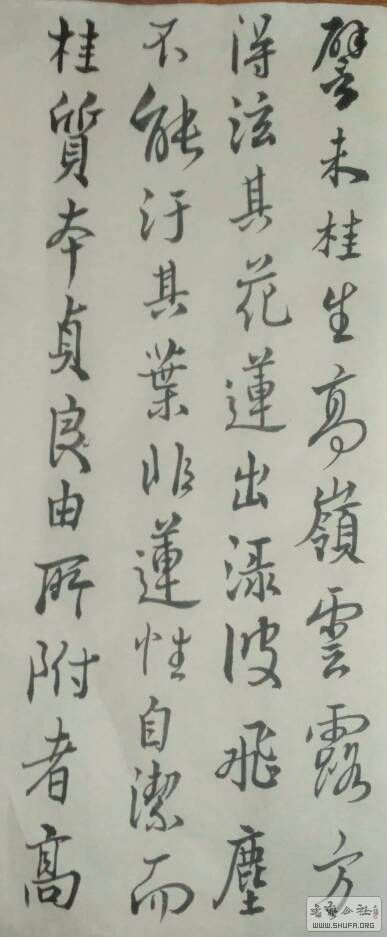 譬未桂生高嶺雲露方
得泫其花蓮出淥波飛塵
不能汙其葉非蓮性自潔而
桂質本貞良由所附者高
公社
WWW.SHUFA.ORG